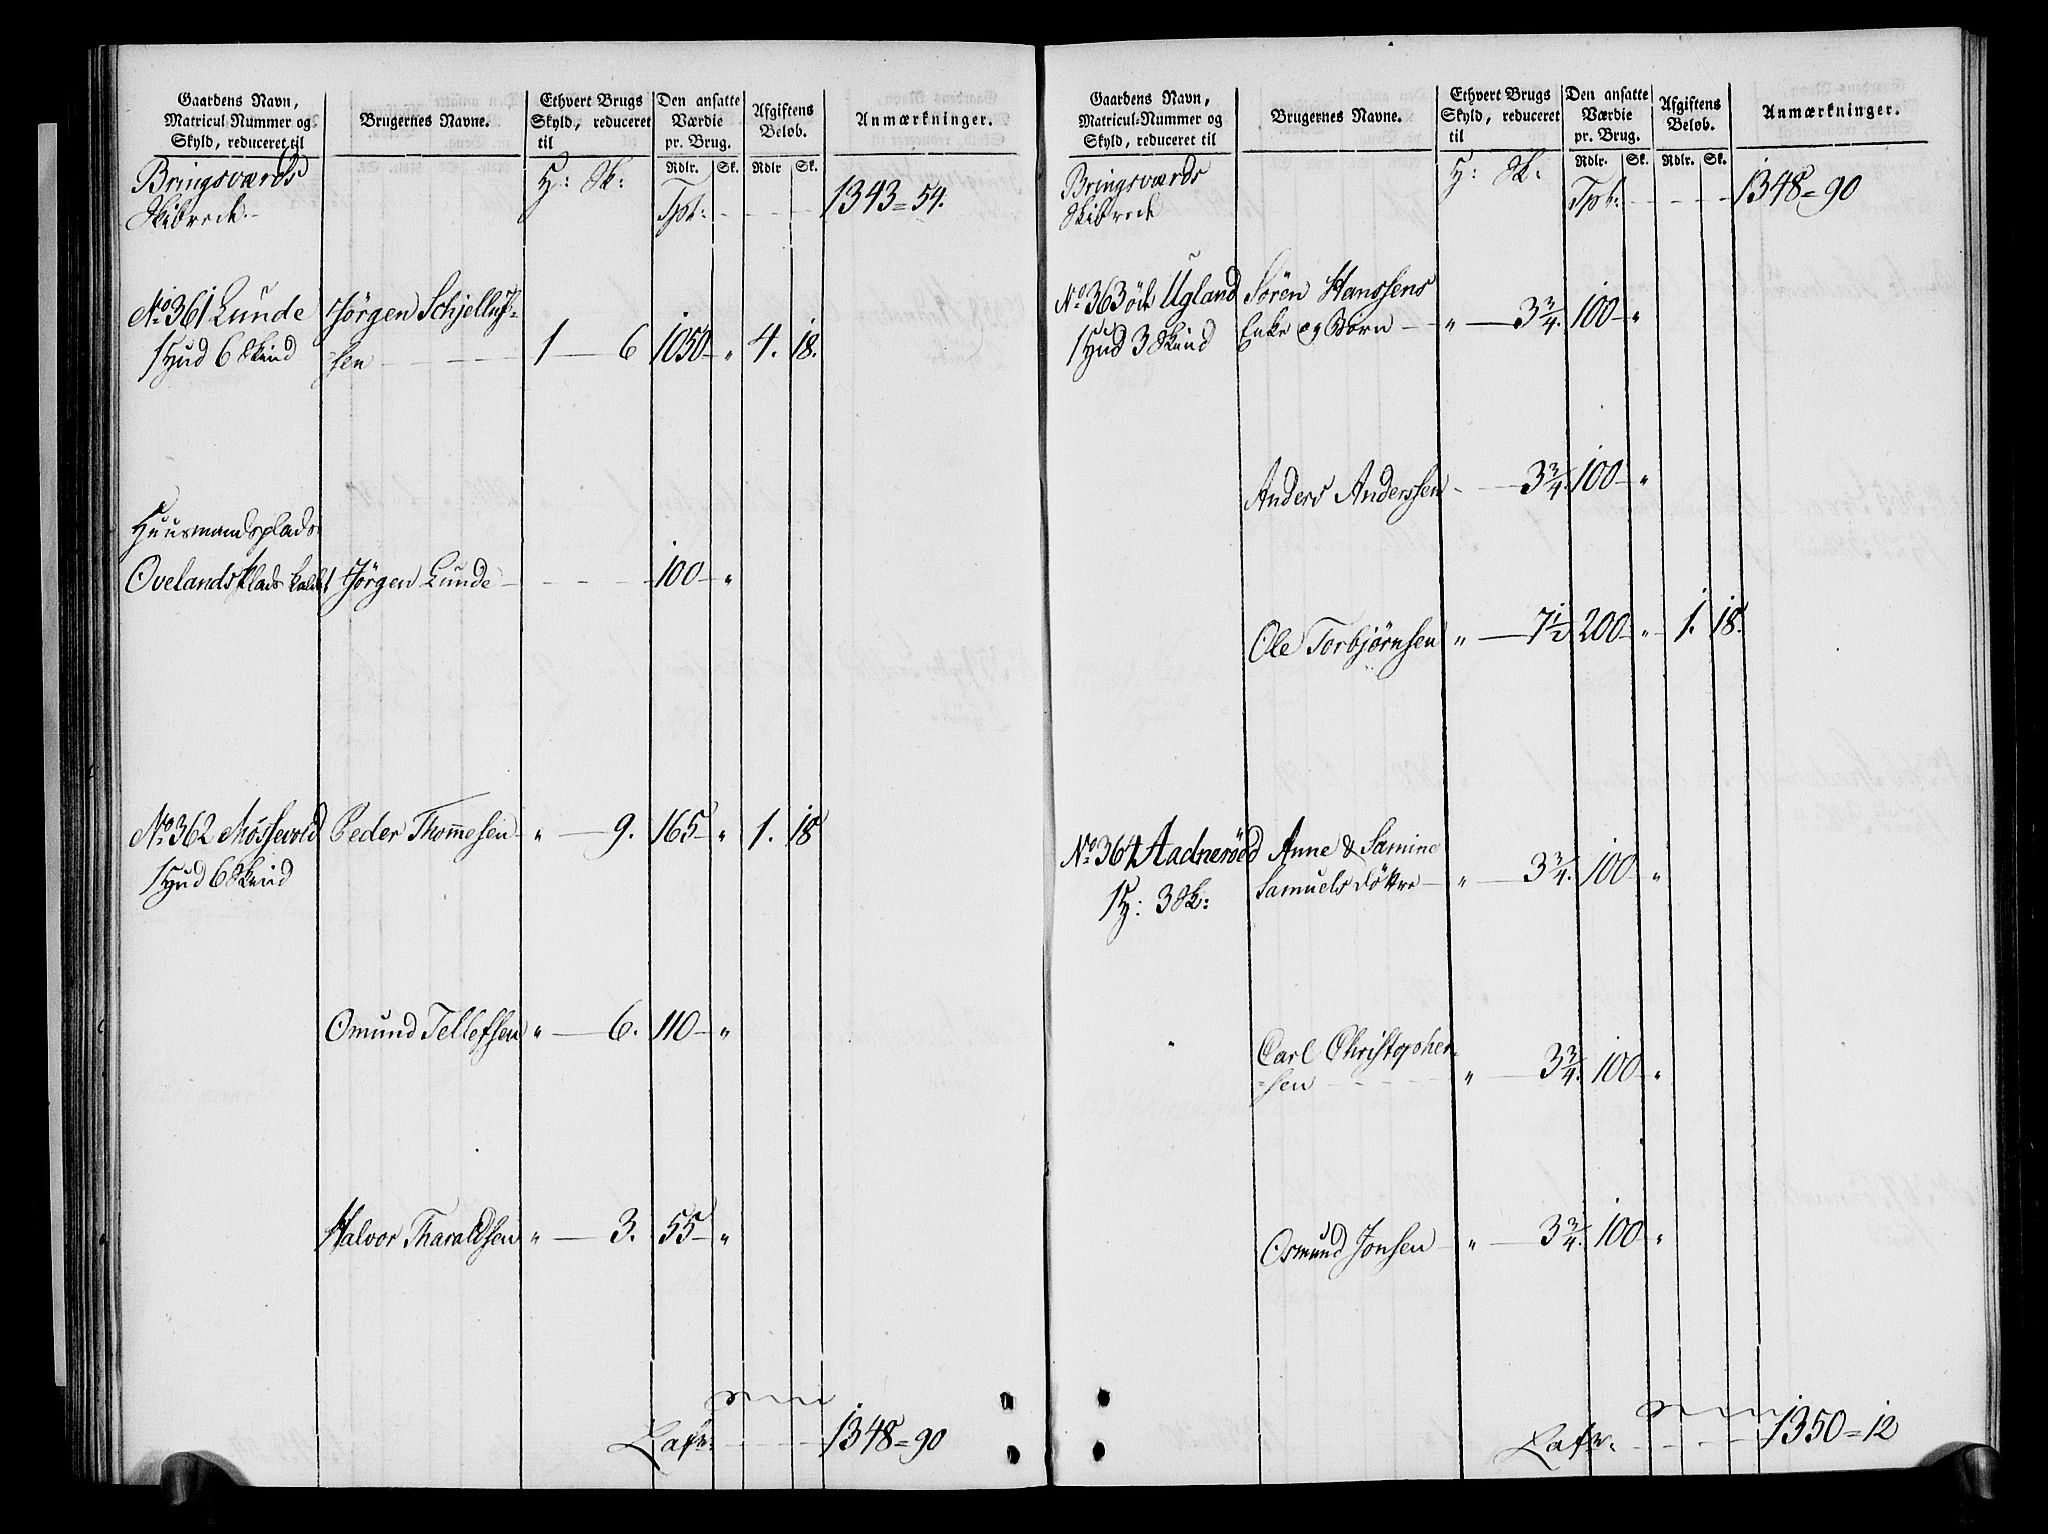 Gaardens Navn, Matricul-Nummer og Skyld, reduceret til
Brugernes Navne.
Ethvert Brugs Skyld, reduceret til
Den ansatte Værdie pr. Brug.
Afgiftens Beløb.
Anmærkninger.
Rdlr. Sk. Rdlr Sk.
Bringsværds H: Sk:
Skibrede Tpt: 1343=54.
No 361 Lunde Jörgen Schjelluf=
1 Hud 6 Skind sen 1 6 1050 " 4. 18.
Huusmandsplads
Ovelands Plads kaldet Jörgen Lunde 100 "
No 362 Mössevold Peder Thommesen " 9. 165 " 1. 18
1 Hud 6 Skind
Omund Tellefsen " 6. 110 "
Halvor Tharaldsen " 3. 55 "
Lats: 1348=90
Gaardens Navn, Matricul-Nummer og Skyld, reduceret til
Brugernes Navne.
Ethvert Brugs Skyld, reduceret til
Den ansatte Værdie pr. Brug.
Afgiftens Beløb.
Anmærkninger.
Rdlr. Sk. Rdlr. Sk.
Bringsværds H: Sk:
Skibrede Tpt: 1348=90
No 363 öde Ugland Sören Hanssens
1 Hud 3 Skind Enke og Börn " 3 3/4. 100 "
Anders Anderssen 3 3/4. 100 "
Ole Torbjörnsen " 7 1/2 200 " 1. 18.
No 364 Aadneröed Anne & Samine
1 H: 3 Sk: Samuels Døttre " 3 3/4. 100 "
Carl Christopher=
=sen " 3 3/4. 100 "
Osmund Jonsen " 3 3/4. 100 "
Lats: 1350=12